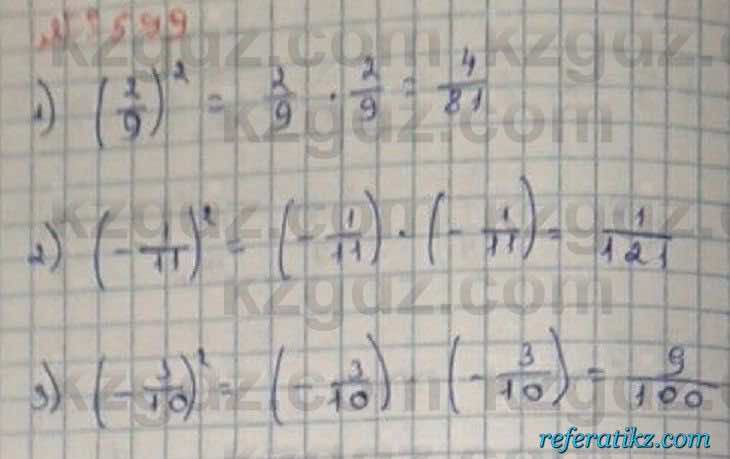 599
1) (2/9)² = 2/9 · 2/9 = 4/81
2) (-1/11)² = (-1/11) · (-1/11) = 1/121
3) (-3/10)² = (-3/10) · (-3/10) = 9/100
kzgdz.com
kzgdz.com
kzgdz.com
kzgdz.com
kzgdz.com
referatikz.com